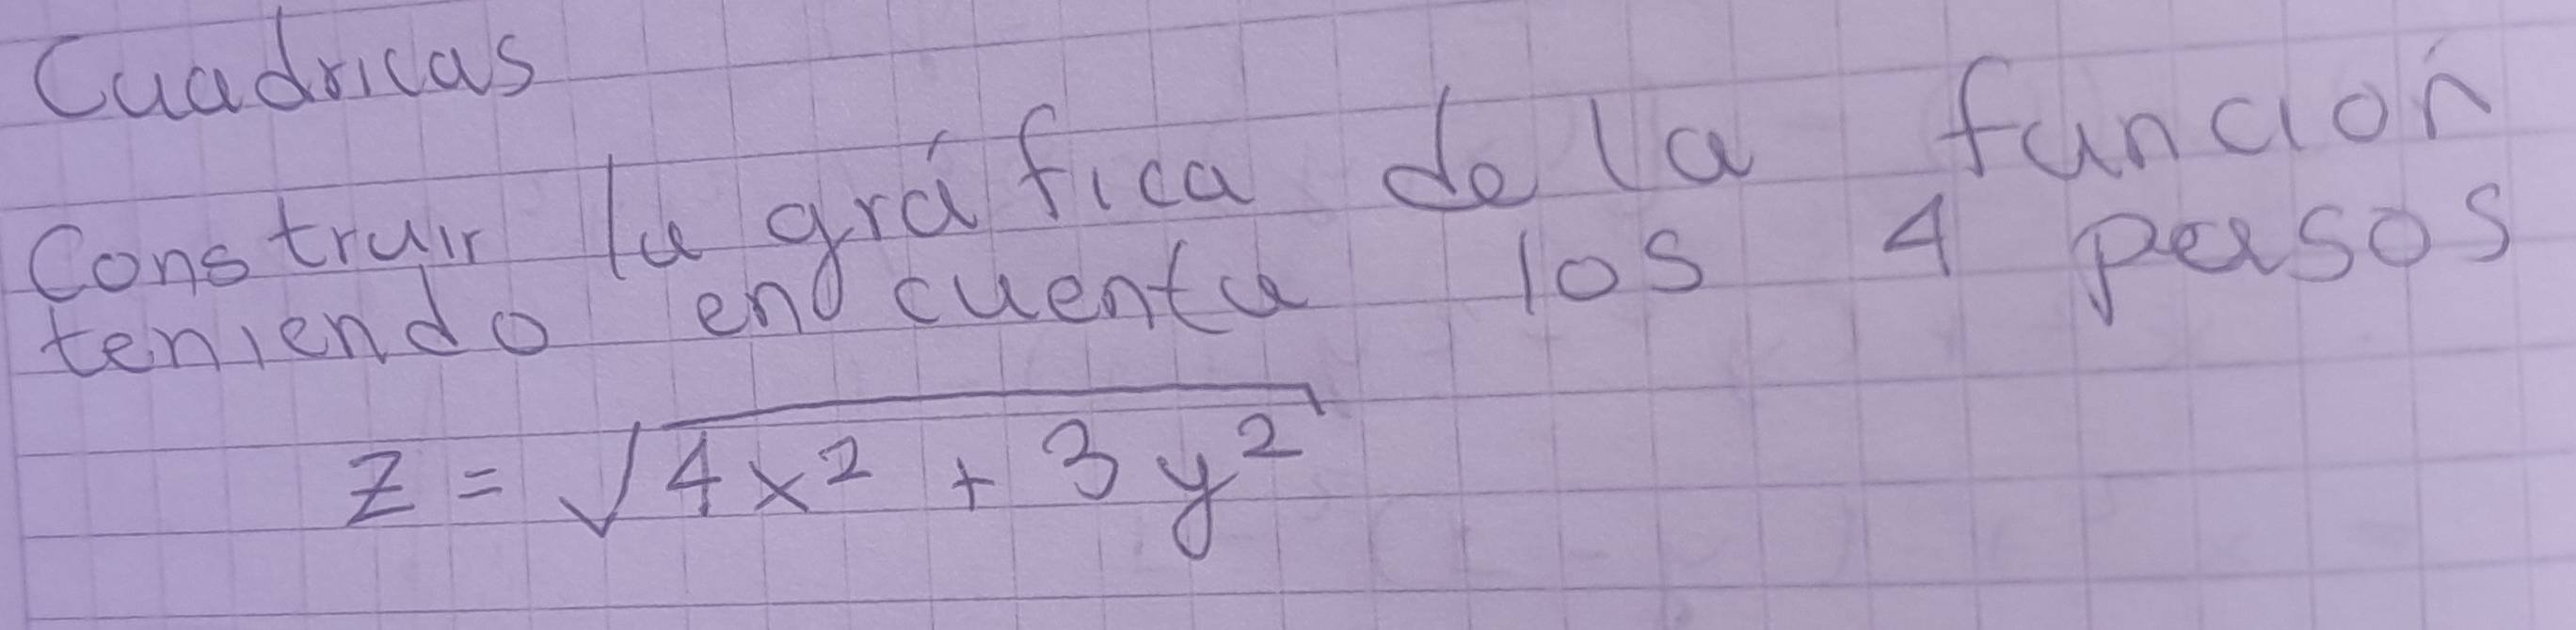 Cuadricas
Construir la gráfica de la función
teniendo en cuenta los 4 pasos
z = √4x² + 3y²